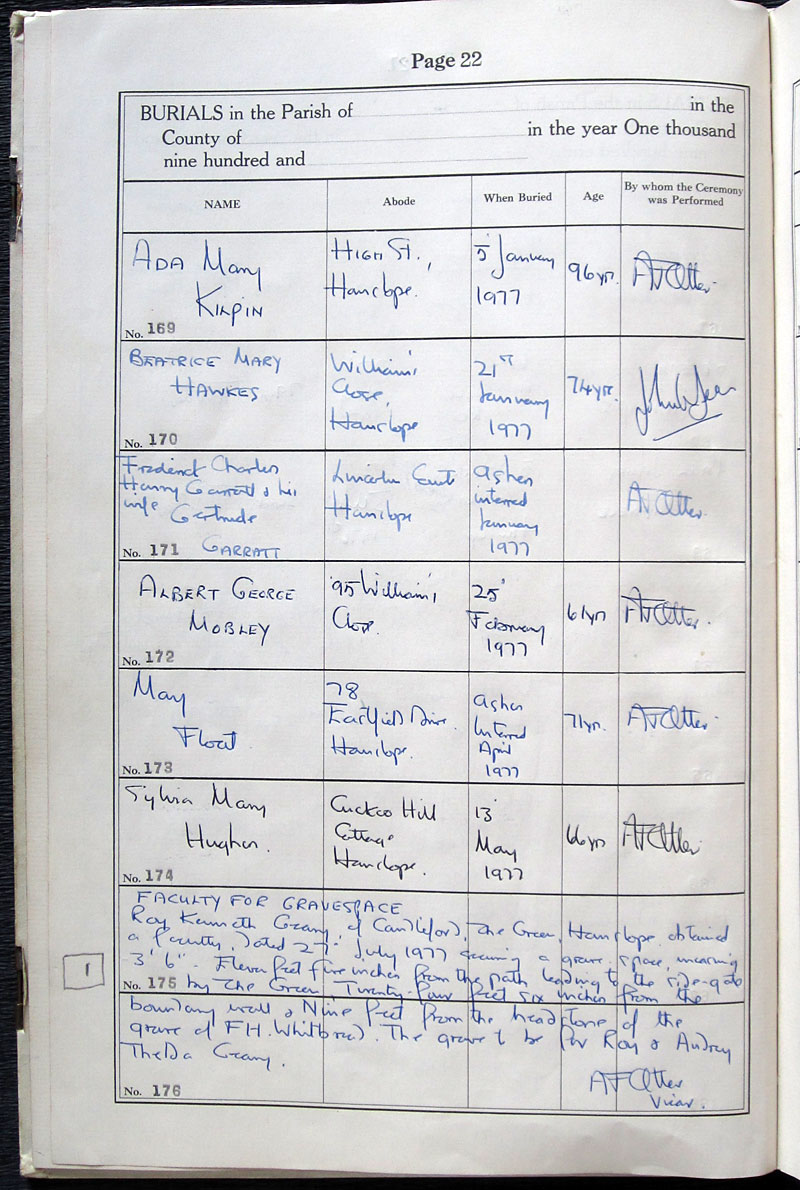 Page 22
BURIALS in the Parish of in the
County of in the year One thousand
nine hundred and
NAME Abode When Buried Age By whom the Ceremony was Performed
ADA Mary KILPIN High St., Hanslope. 5 January 1977 96 yr. AFOtter
No. 169
BEATRICE MARY HAWKES Williams Close, Hanslope 21st January 1977 74 yr.
No. 170
Frederick Charles Harry Garratt & his wife Gertrude GARRATT Lincoln Court Hanslope ashes interred January 1977 AFOtter
No. 171
ALBERT GEORGE MOBLEY 95 Williams Close. 25 February 1977 61 yr AFOtter
No. 172
May Float 78 Eastfield Drive. Hanslope. ashes interred April 1977 71 yr. AFOtter
No. 173
Sylvia Mary Hughes. Cuckoo Hill Cottage Hanslope. 13 May 1977 66 yr AFOtter
No. 174
FACULTY FOR GRAVESPACE
Roy Kenneth of Candleford, The Green, Hanslope obtained
a faculty, dated 27 July 1977 a grave space, measuring
3' 6". Eleven feet five inches from the path leading to the side-gate
1 No. 175 by the Green, Twenty four feet six inches from the
boundary wall & Nine feet from the headstone of the
grave of F.H. Whitbread. The grave to be for Roy & Audrey
Thelda
AFOtter
Vicar.
No. 176